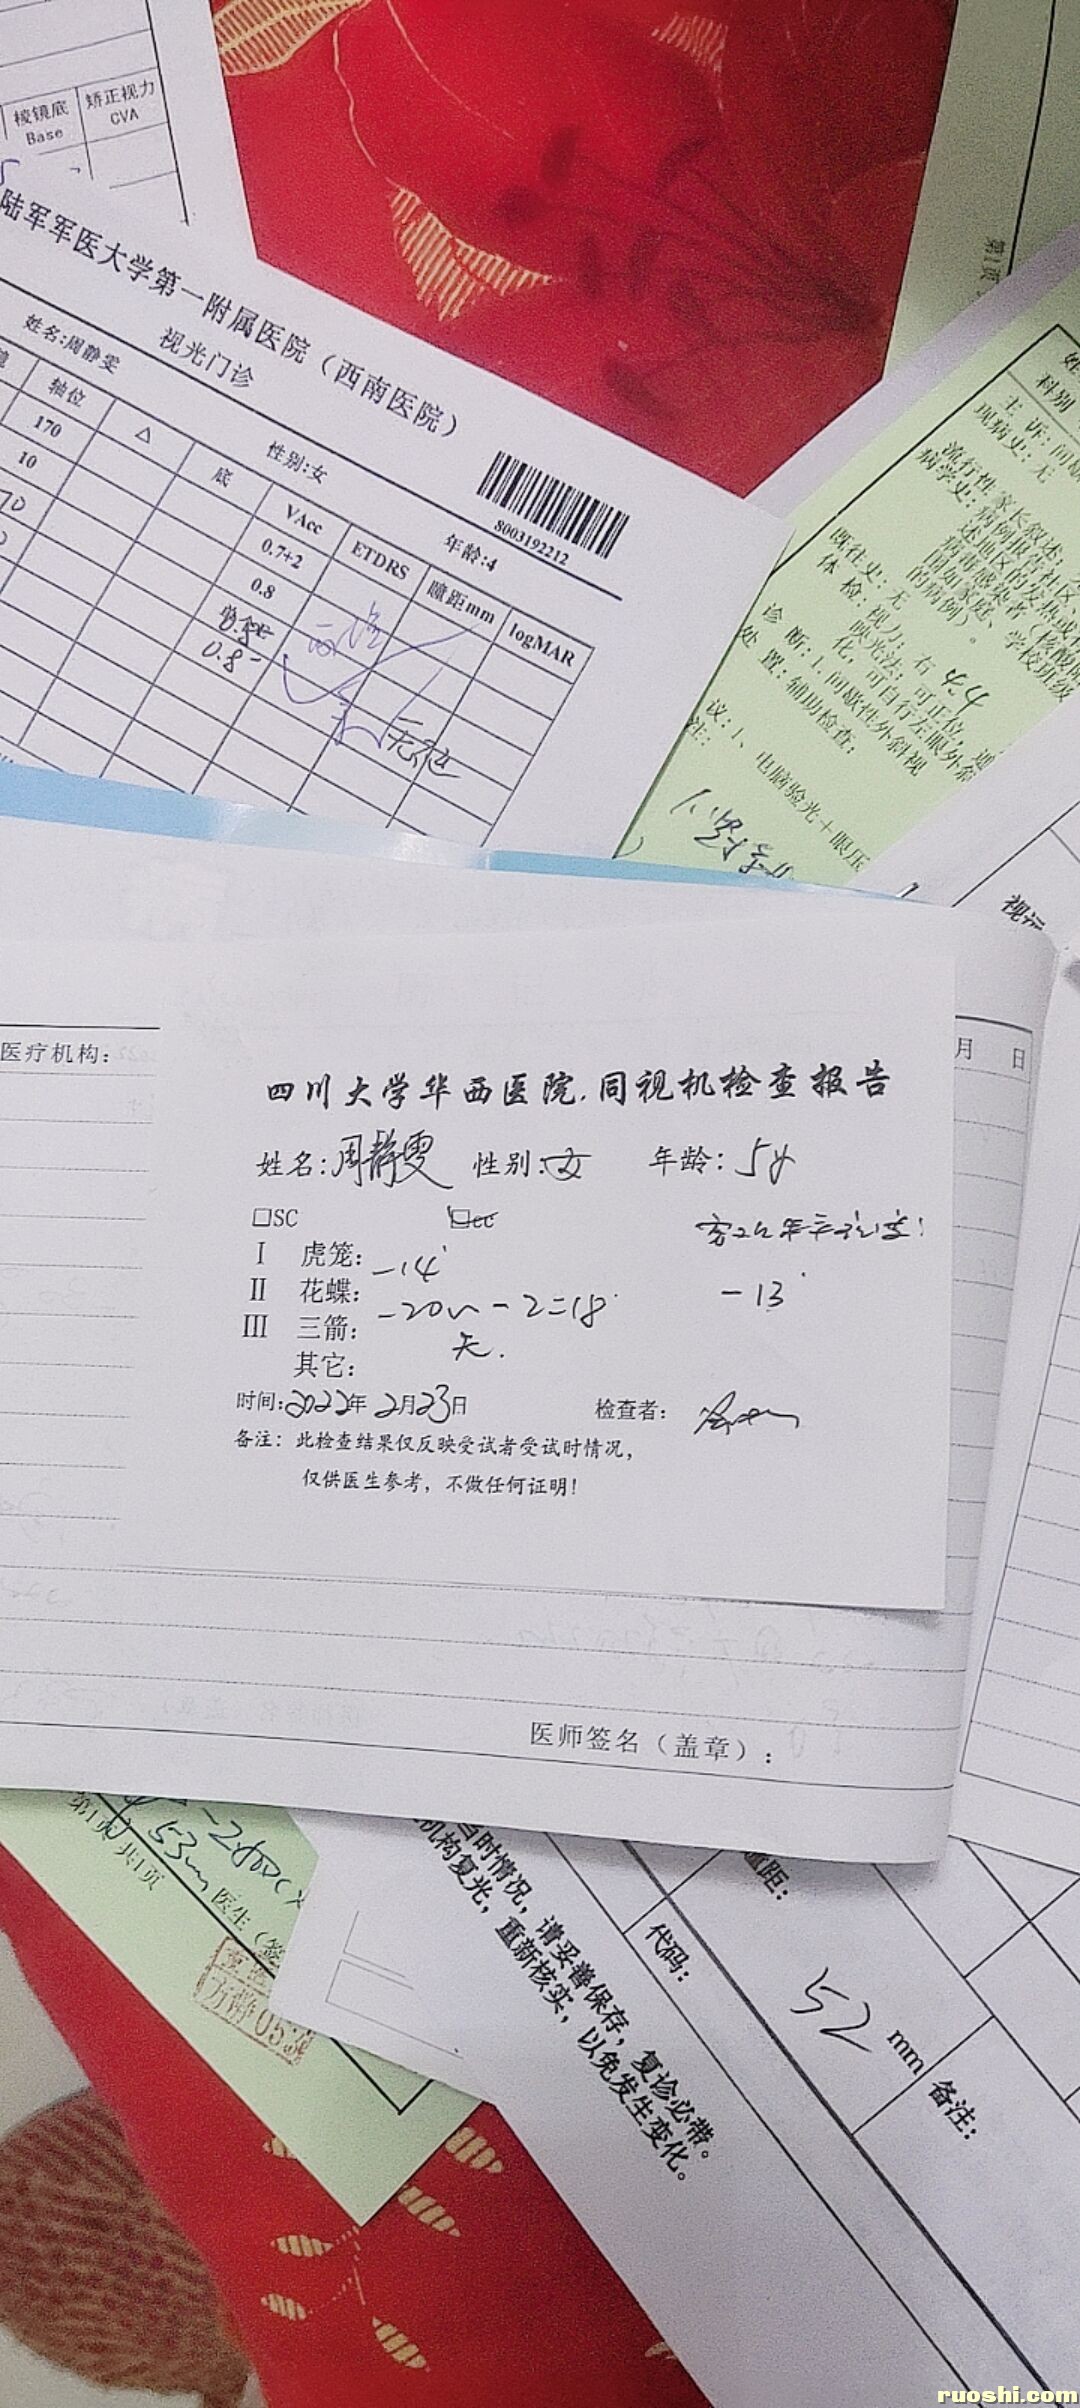 棱镜底 矫正视力
Base CVA
陆军军医大学第一附属医院（西南医院）
视光门诊
姓名:周静雯 性别:女 年龄:4
8003192212
轴位 △ 底 VAcc ETDRS 瞳距mm logMAR
170 0.7+2
10 0.8
0.8-
第1页
科别
主 诉: 间歇
现病史: 无
流行性 家长叙述:
病学史: 病例报告社区、
述地区的发热或有
病毒感染者(核酸阳
间如家庭、学校班级
的病例)。
既往史: 无
体 检: 视力: 右
映光法: 可正位,
化, 可自行左眼外斜
诊 断: 1. 间歇性外斜视
处 置: 辅助检查:
电脑验光+眼压
议: 1、
注:
视远
医疗机构: 月 日
四川大学华西医院.同视机检查报告
姓名:周静雯 性别:女 年龄:5岁
□SC □cc
Ⅰ 虎笼: -14°
Ⅱ 花蝶: -20~-2=18° -13°
Ⅲ 三箭: 无.
其它:
时间:2022年2月23日 检查者:
备注: 此检查结果仅反映受试者受试时情况,
仅供医生参考, 不做任何证明!
医师签名（盖章）:
第1页 共1页
53mm
医生(签
当时情况, 请妥善保存, 复诊必带。
机构复光, 重新核实, 以免发生变化。
瞳距:
代码:
52 mm
备注:
ruoshi.com